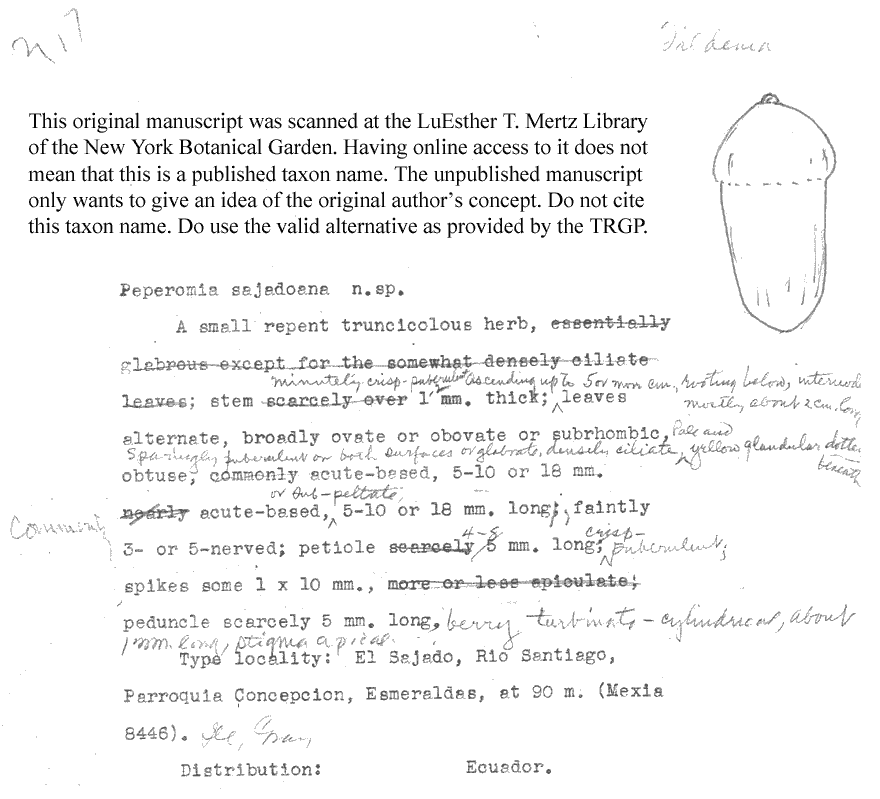 n 17
This original manuscript was scanned at the LuEsther T. Mertz Library
of the New York Botanical Garden. Having online access to it does not
mean that this is a published taxon name. The unpublished manuscript
only wants to give an idea of the original author's concept. Do not cite
this taxon name. Do use the valid alternative as provided by the TRGP.
Peperomia sajadoana n.sp.
A small repent truncicolous herb, essentially
glabrous except for the somewhat densely ciliate
minutely crisp-puberulent ascending up to 5 or more cm, rooting below, internodes
leaves; stem scarcely over 1 mm. thick; leaves
mostly about 2 cm. long
alternate, broadly ovate or obovate or subrhombic,
pale and
sparingly puberulent on both surfaces or glabrate, densely ciliate, yellow glandular dotted
beneath
obtuse, commonly acute-based, 5-10 or 18 mm.
or sub-peltate,
nearly acute-based, 5-10 or 18 mm. long; faintly
commonly
4-8
crisp-
3- or 5-nerved; petiole scarcely 5 mm. long; puberulent;
spikes some 1 x 10 mm., more or less apiculate;
peduncle scarcely 5 mm. long, berry turbinate-cylindrical, about
1 mm. long, stigma apical.
Type locality: El Sajado, Rio Santiago,
Parroquia Concepcion, Esmeraldas, at 90 m. (Mexia
8446). Ill, Gray
Distribution: Ecuador.